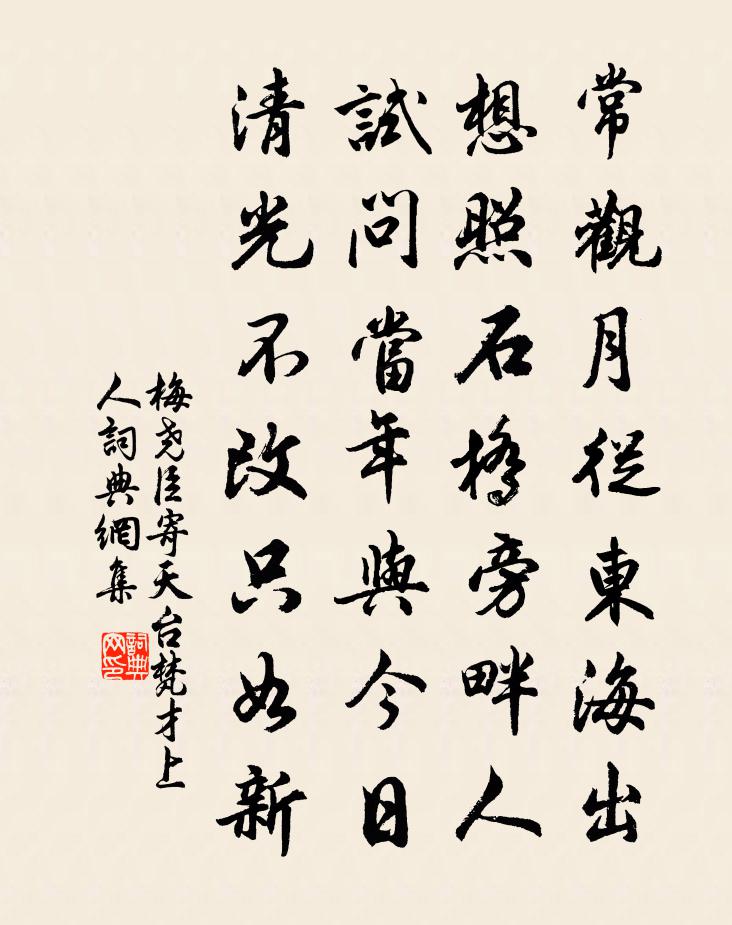 常觀月從東海出
想照石橋旁畔人
試問當年與今日
清光不改只如新
梅堯臣寄天台梵才上
人詞典網集
詞典
网印